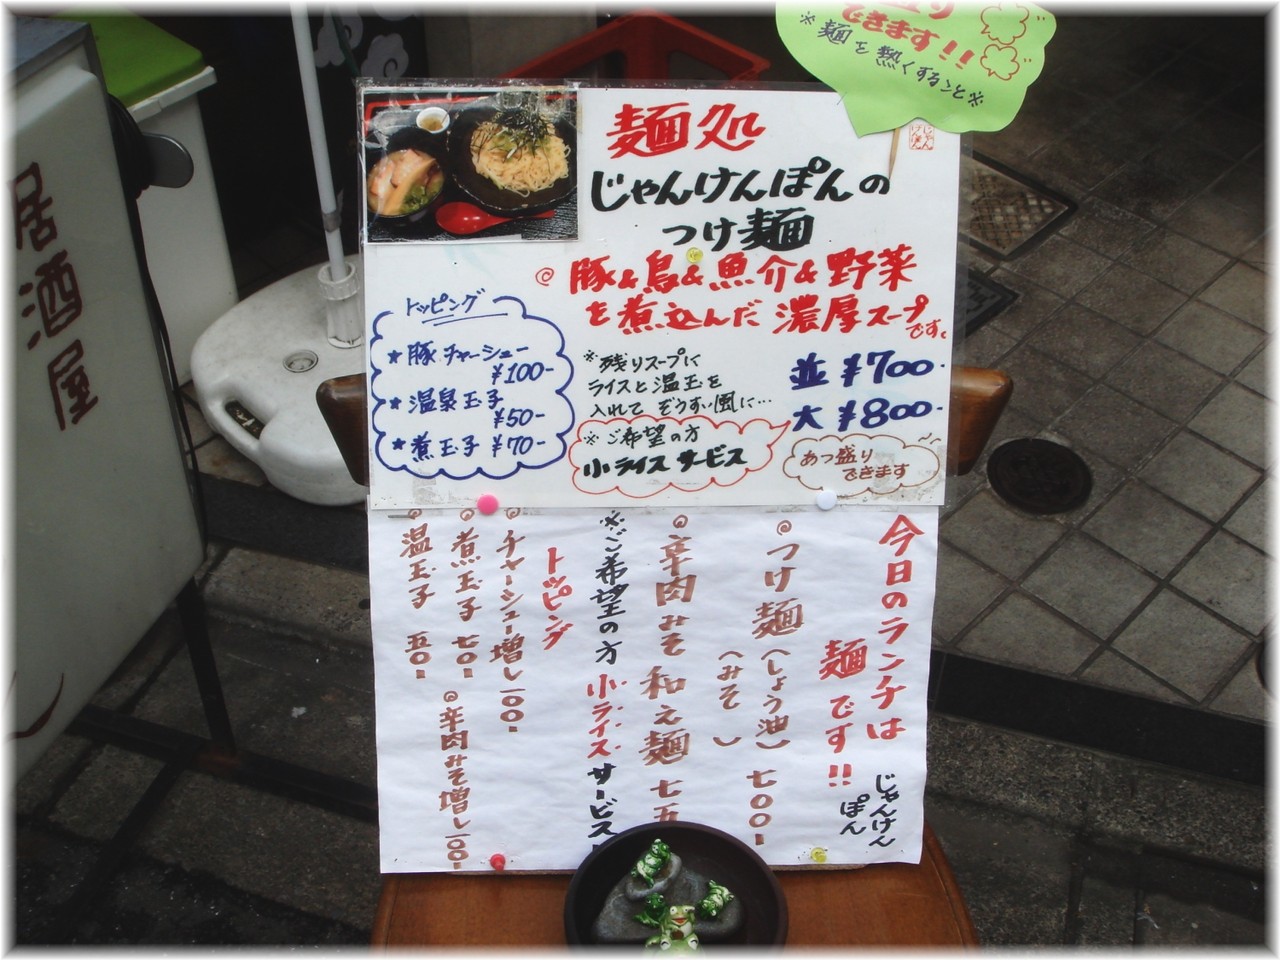 居酒屋
できます!!
※麺を熱くすること※
麺処
じゃんけんぽんの
つけ麺
◎豚&鳥&魚介&野菜
を煮込んだ濃厚スープ
です。
トッピング
★豚チャーシュー
¥100-
★温泉玉子
¥50-
★煮玉子 ¥70-
※残りスープに
ライスと温玉を
入れて ぞうすい風に…
※ご希望の方
小ライスサービス
並 ¥700-
大 ¥800-
あつ盛り
できます
今日のランチは
麺です!!
じゃんけん
ぽん
◎つけ麺(しょう油)七〇〇-
(みそ )
◎辛肉みそ和え麺 七五
※ご希望の方 小ライスサービス
トッピング
◎チャーシュー増し一〇〇-
◎煮玉子 七〇-
◎温玉子 五〇-
◎辛肉みそ増し一〇〇-